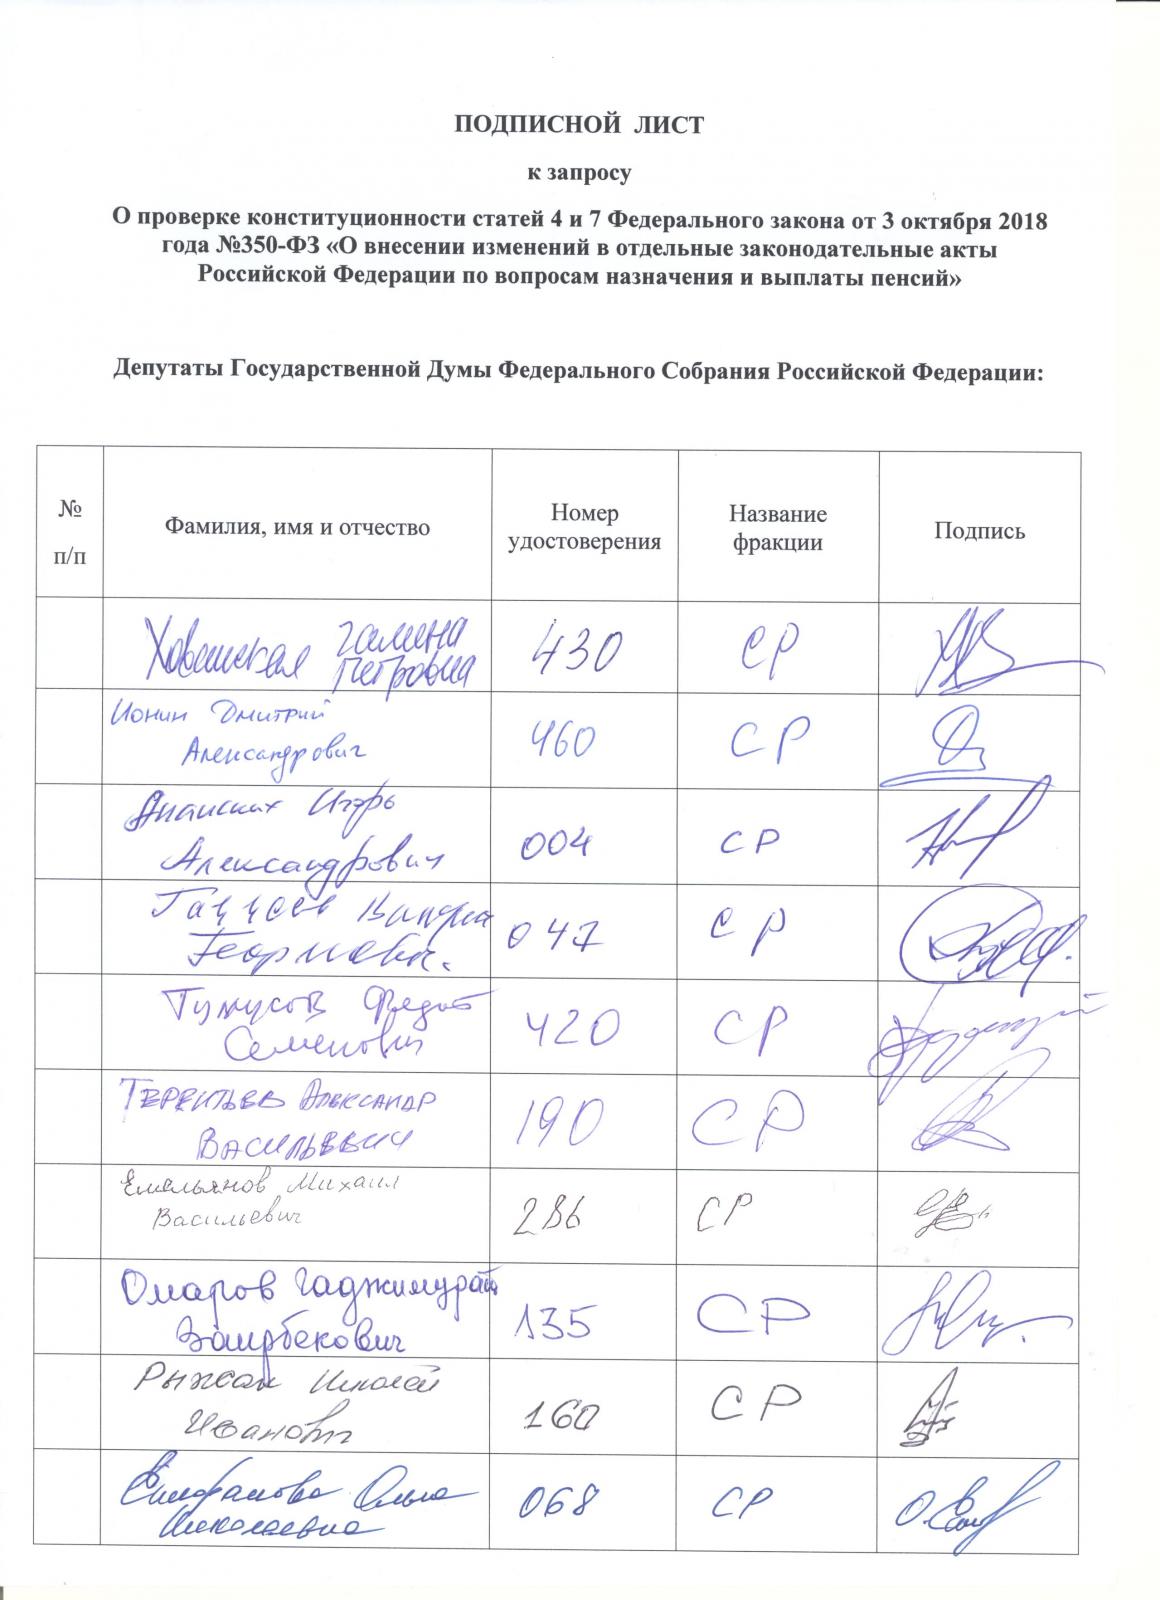 ПОДПИСНОЙ ЛИСТ
к запросу
О проверке конституционности статей 4 и 7 Федерального закона от 3 октября 2018
года №350-ФЗ «О внесении изменений в отдельные законодательные акты
Российской Федерации по вопросам назначения и выплаты пенсий»
Депутаты Государственной Думы Федерального Собрания Российской Федерации:
№
п/п
Фамилия, имя и отчество
Номер
удостоверения
Название
фракции
Подпись
Хованская Галина
Петровна
430
СР
Ионин Дмитрий
Александрович
460
СР
Ананских Игорь
Александрович
004
СР
Георгиевич.
047
СР
Тумусов Федот
Семенович
420
СР
Терентьев Александр
Васильевич
190
СР
Емельянов Михаил
Васильевич
286
СР
Омаров Гаджимурад
Заирбекович
135
СР
Рыжак Николай
Иванович
160
СР
Епифанова Ольга
Николаевна
068
СР